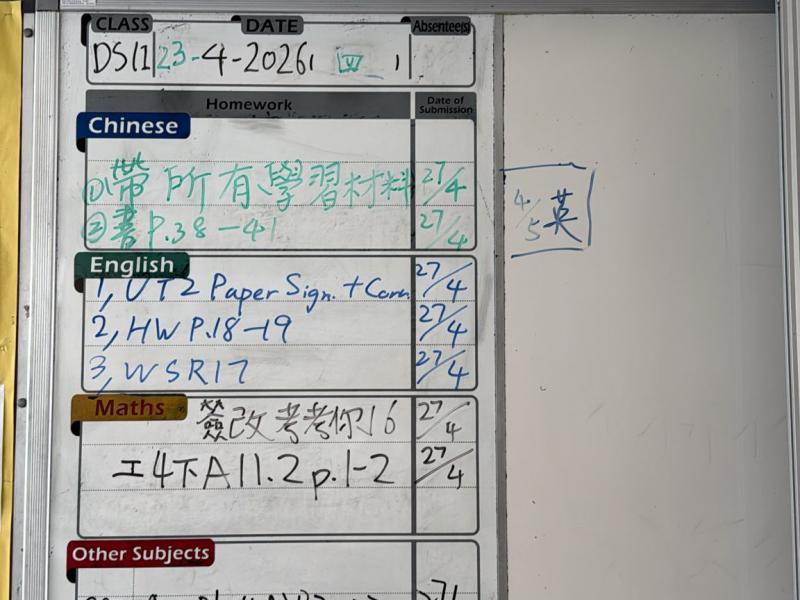 CLASS DATE Absentee(s)
DS(1) 23-4-2026( 四 )
Homework Date of Submission
Chinese
①帶所有學習材料 27/4
②書P.38-41 27/4
English
1, UT2 Paper Sign. + Corr. 27/4
2, HW P.18-19 27/4
3, WS R17 27/4
Maths
**簽改考考你16 27/4
工4下A11.2 p.1-2 27/4
Other Subjects
27/
4/5 英